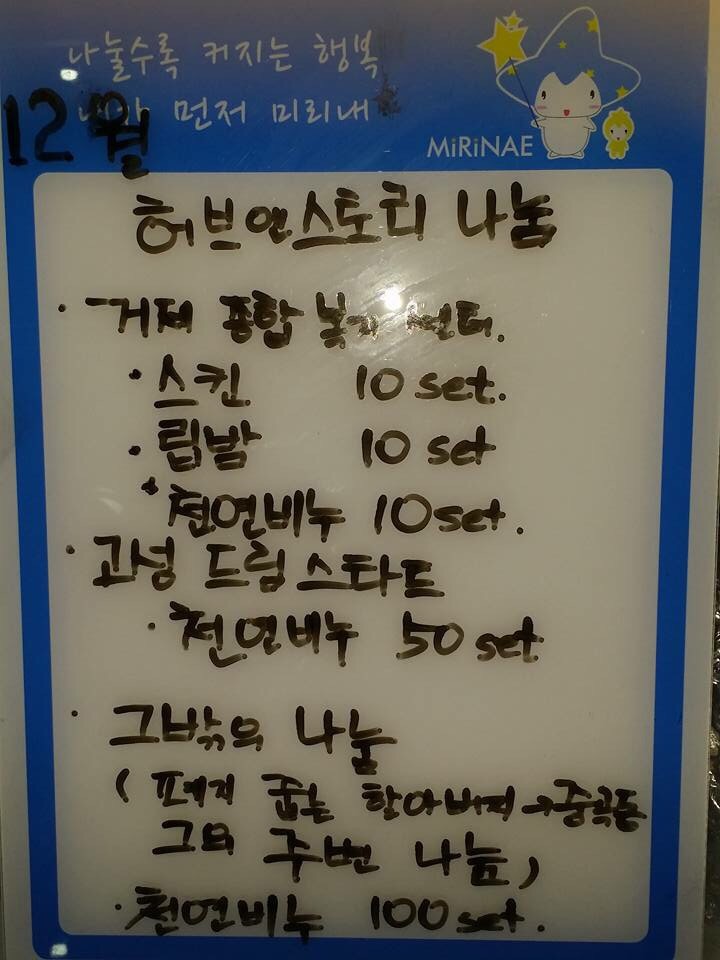 나눌수록 커지는 행복
먼저 미리내
12월
MiRiNAE
허브앤스토리 나눔
· 거제 종합 복지 센터.
· 스킨 10 set.
· 립밤 10 set
· 천연비누 10 set.
· 고성 드림스타트
· 천연비누 50 set
· 그밖의 나눔
( 폐지 줍는 할아버지 → 중곡동
그외 주변 나눔)
· 천연비누 100 set.